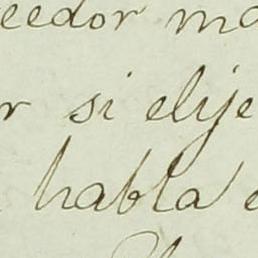 eedor ma
r si elije
habla